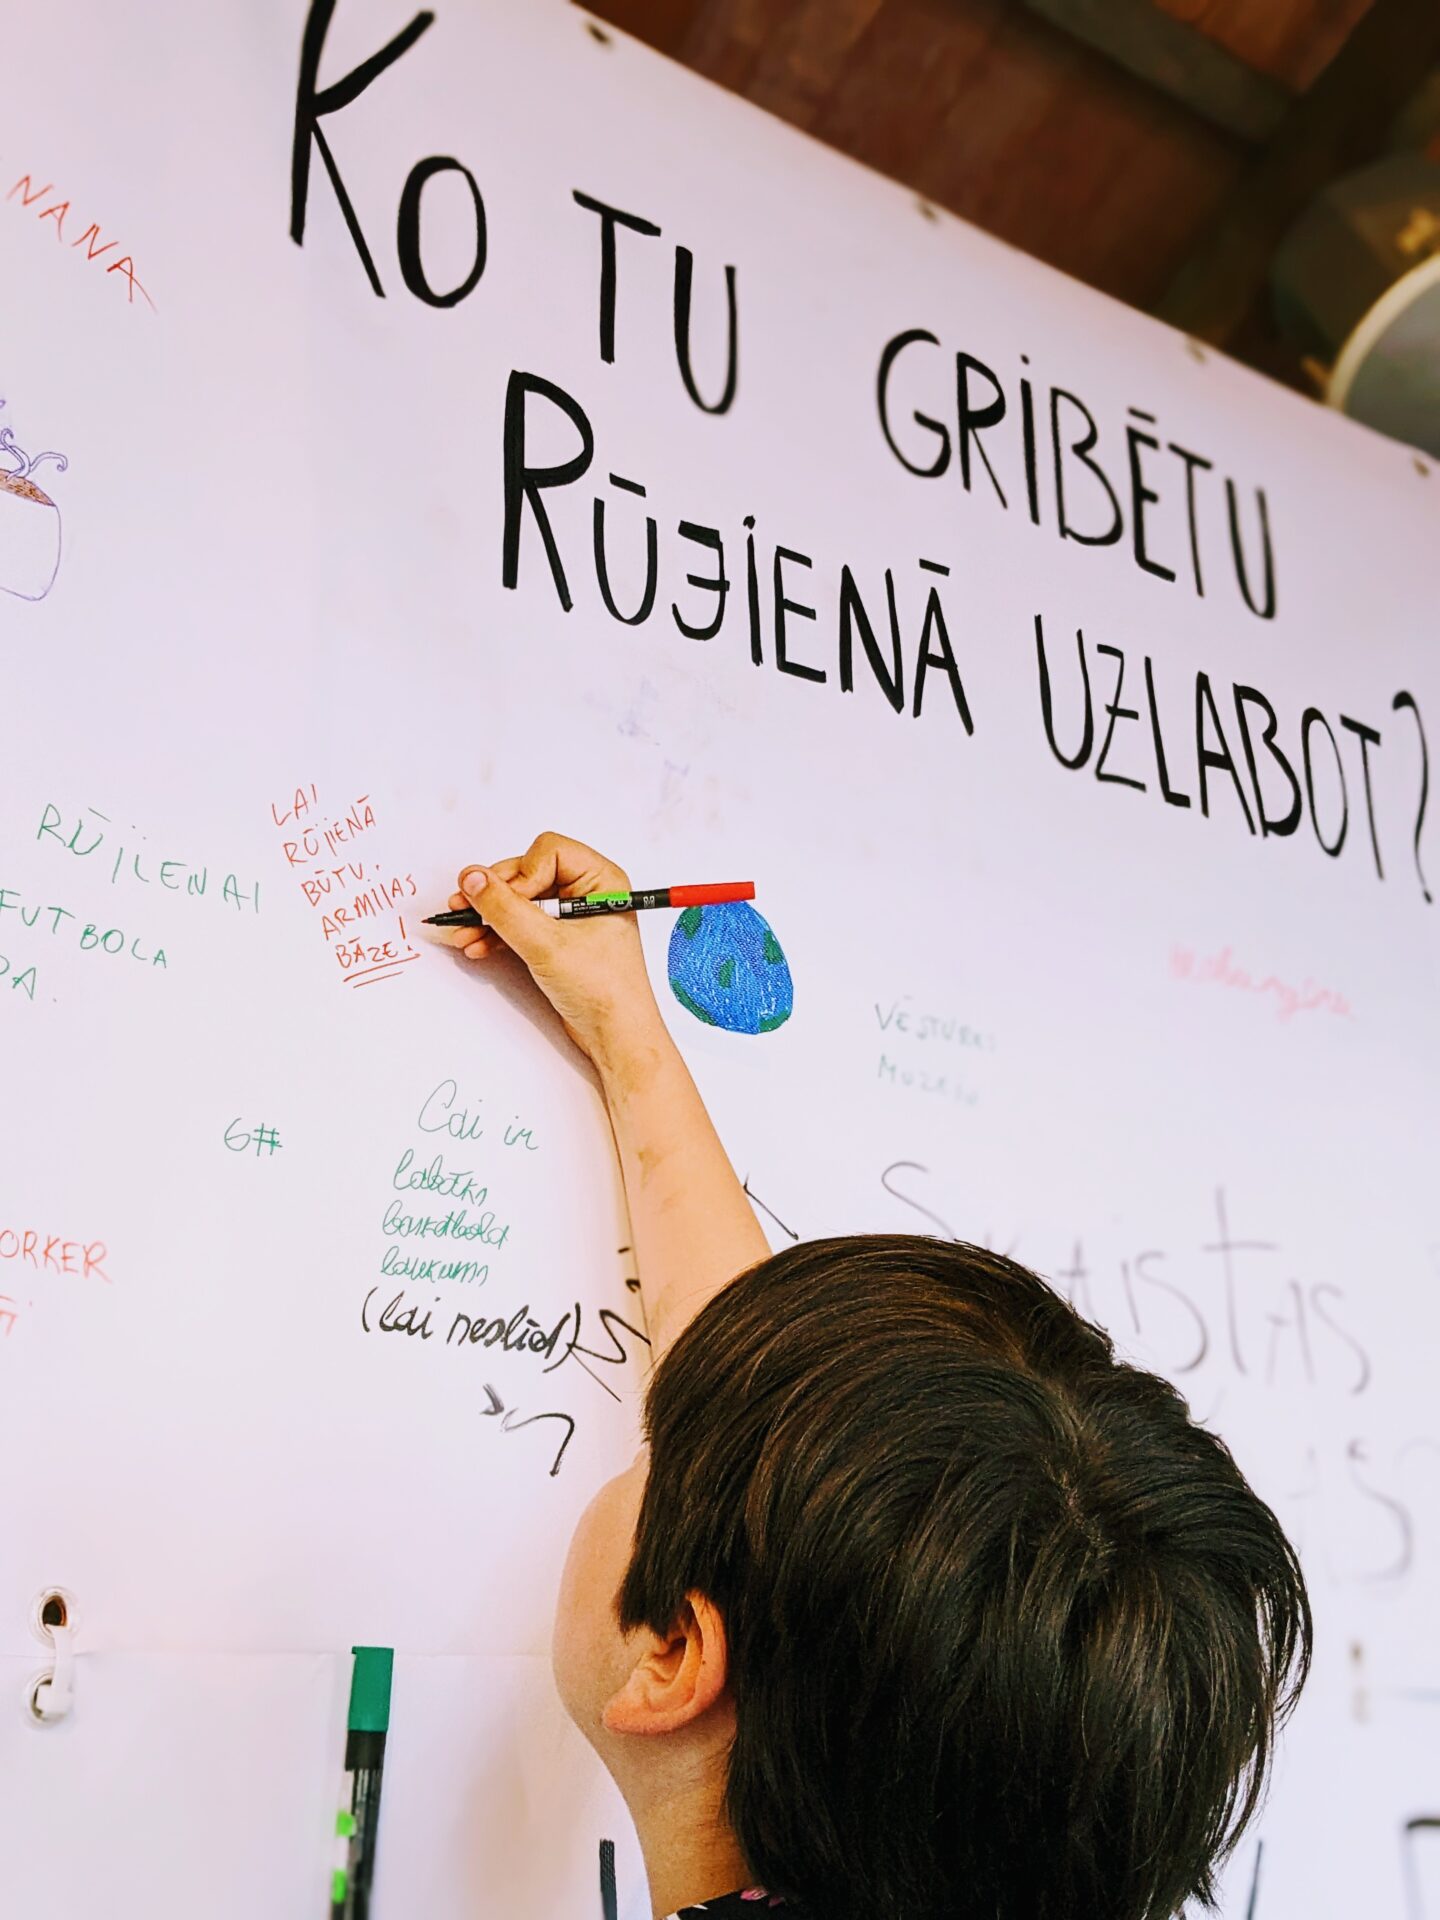 KO TU GRIBĒTU
RŪJIENĀ UZLABOT?
NANA
RŪJIENAI
FUTBOLA
LAI
RŪJIENĀ
BŪTU
ARMIJAS
BĀZE!
VĒSTURES
MUZEJU
6#
Lai ir
labāks
basketbola
laukums
(lai neslīd)
ORKER
SKAISTAS